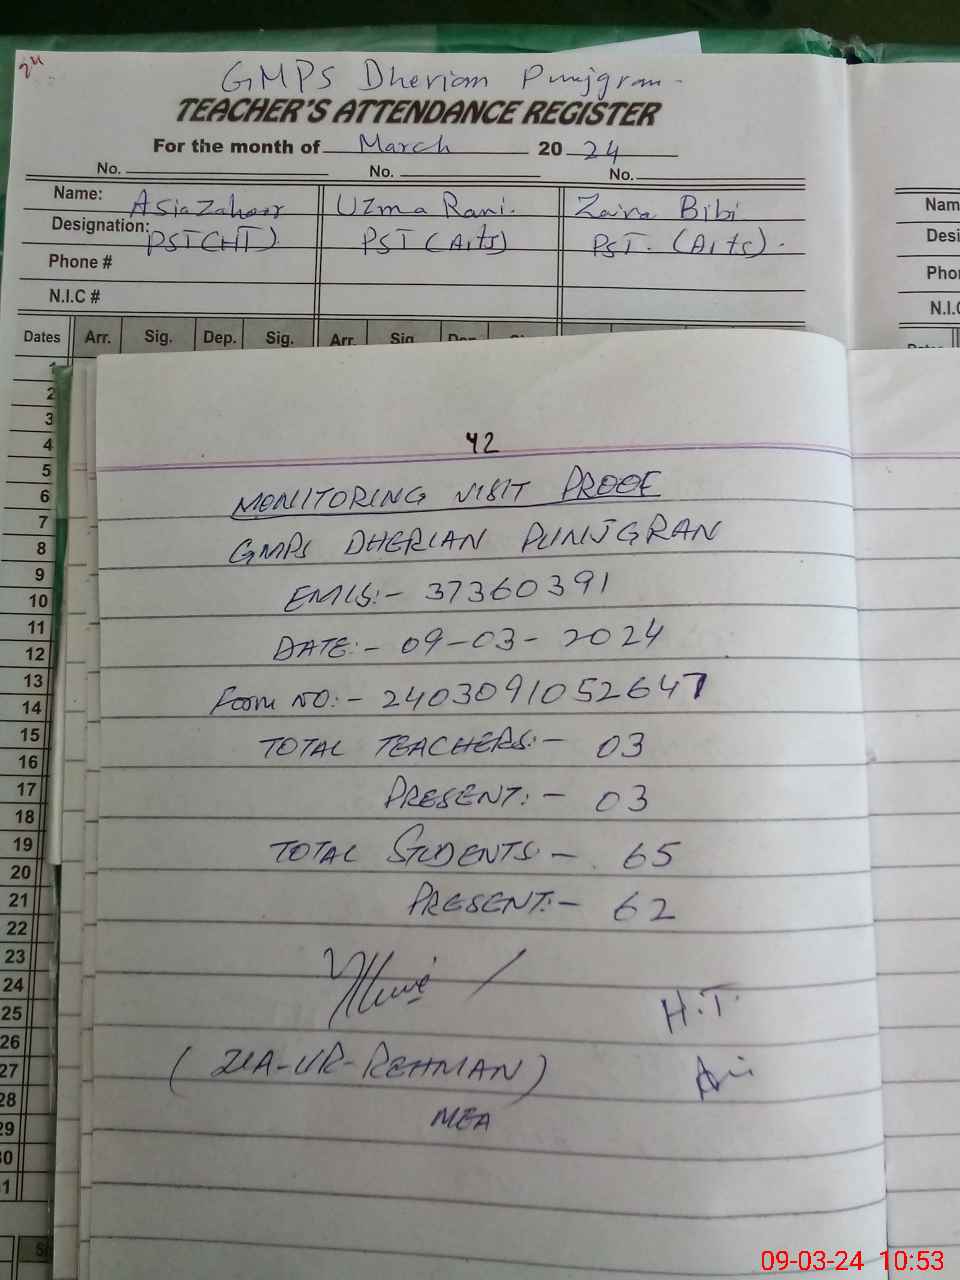 24
GMPS Dherian Punjgran -
TEACHER'S ATTENDANCE REGISTER
For the month of March 2024
No. No. No.
Name: Asia Zahoor Uzma Rani. Zaira Bibi
Designation: PST (HT) PST (Arts) PST. (Arts).
Phone #
N.I.C #
Dates Arr. Sig. Dep. Sig. Arr. Sig. Dep.
Nam
Desi
Phon
N.I.C
1
2
3
4
5
6
7
8
9
10
11
12
13
14
15
16
17
18
19
20
21
22
23
24
25
26
27
28
29
30
31
42
MONITORING VISIT PROOF
GMPS DHERIAN PUNJGRAN
EMIS:- 37360391
DATE:- 09-03-2024
Form NO:- 2403091052647
TOTAL TEACHERS:- 03
PRESENT:- 03
TOTAL STUDENTS:- 65
PRESENT:- 62
H.T.
(ZIA-UR-REHMAN)
MEA
09-03-24 10:53